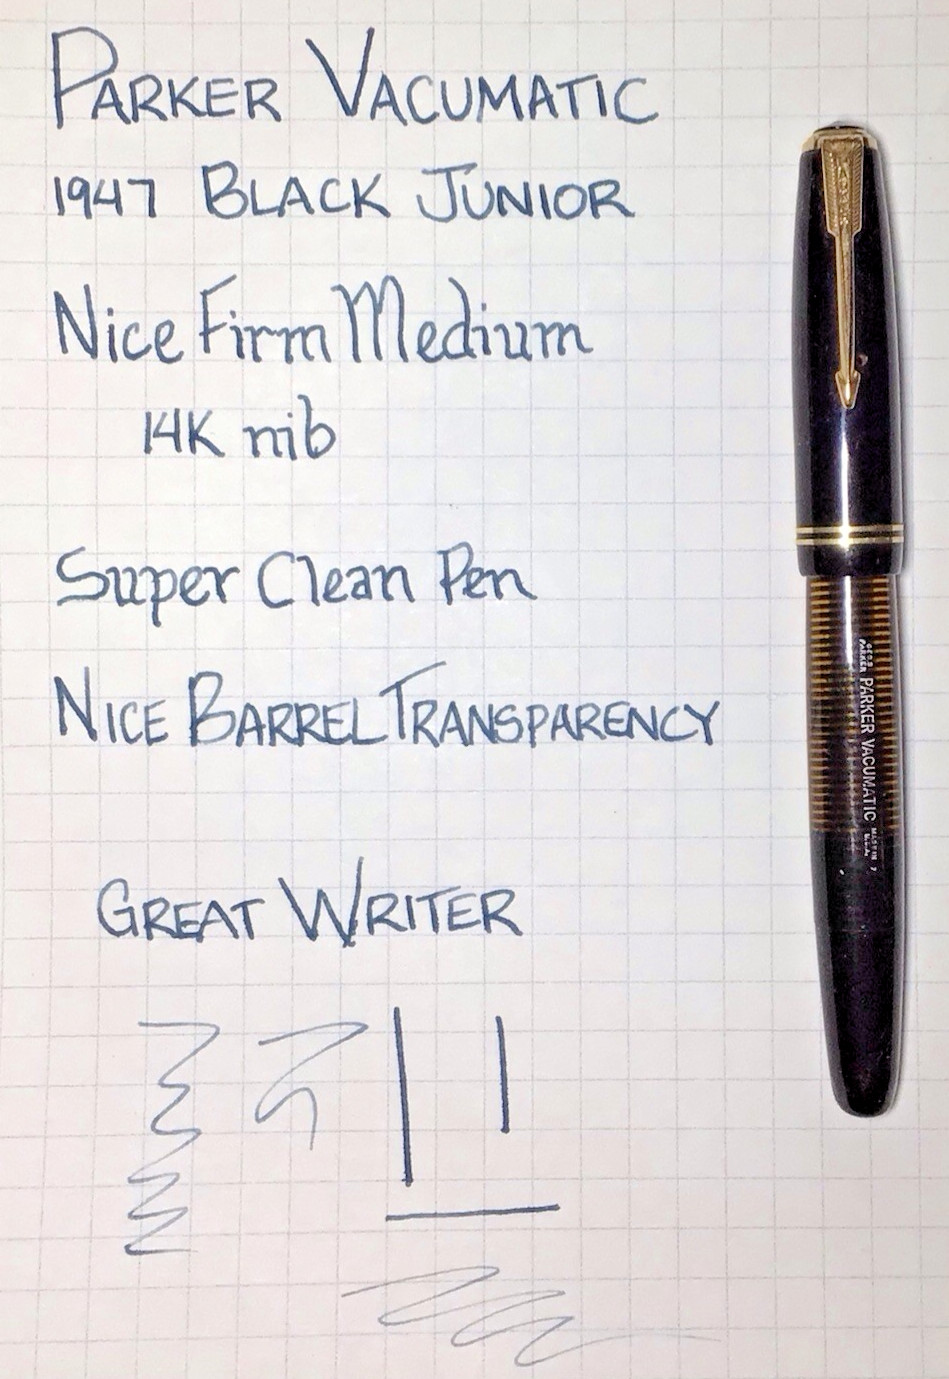 PARKER VACUMATIC
1947 BLACK JUNIOR
Nice Firm Medium
14K nib
Super Clean Pen
NICE BARREL TRANSPARENCY
GREAT WRITER
PARKER VACUMATIC
MADE IN
U.S.A.